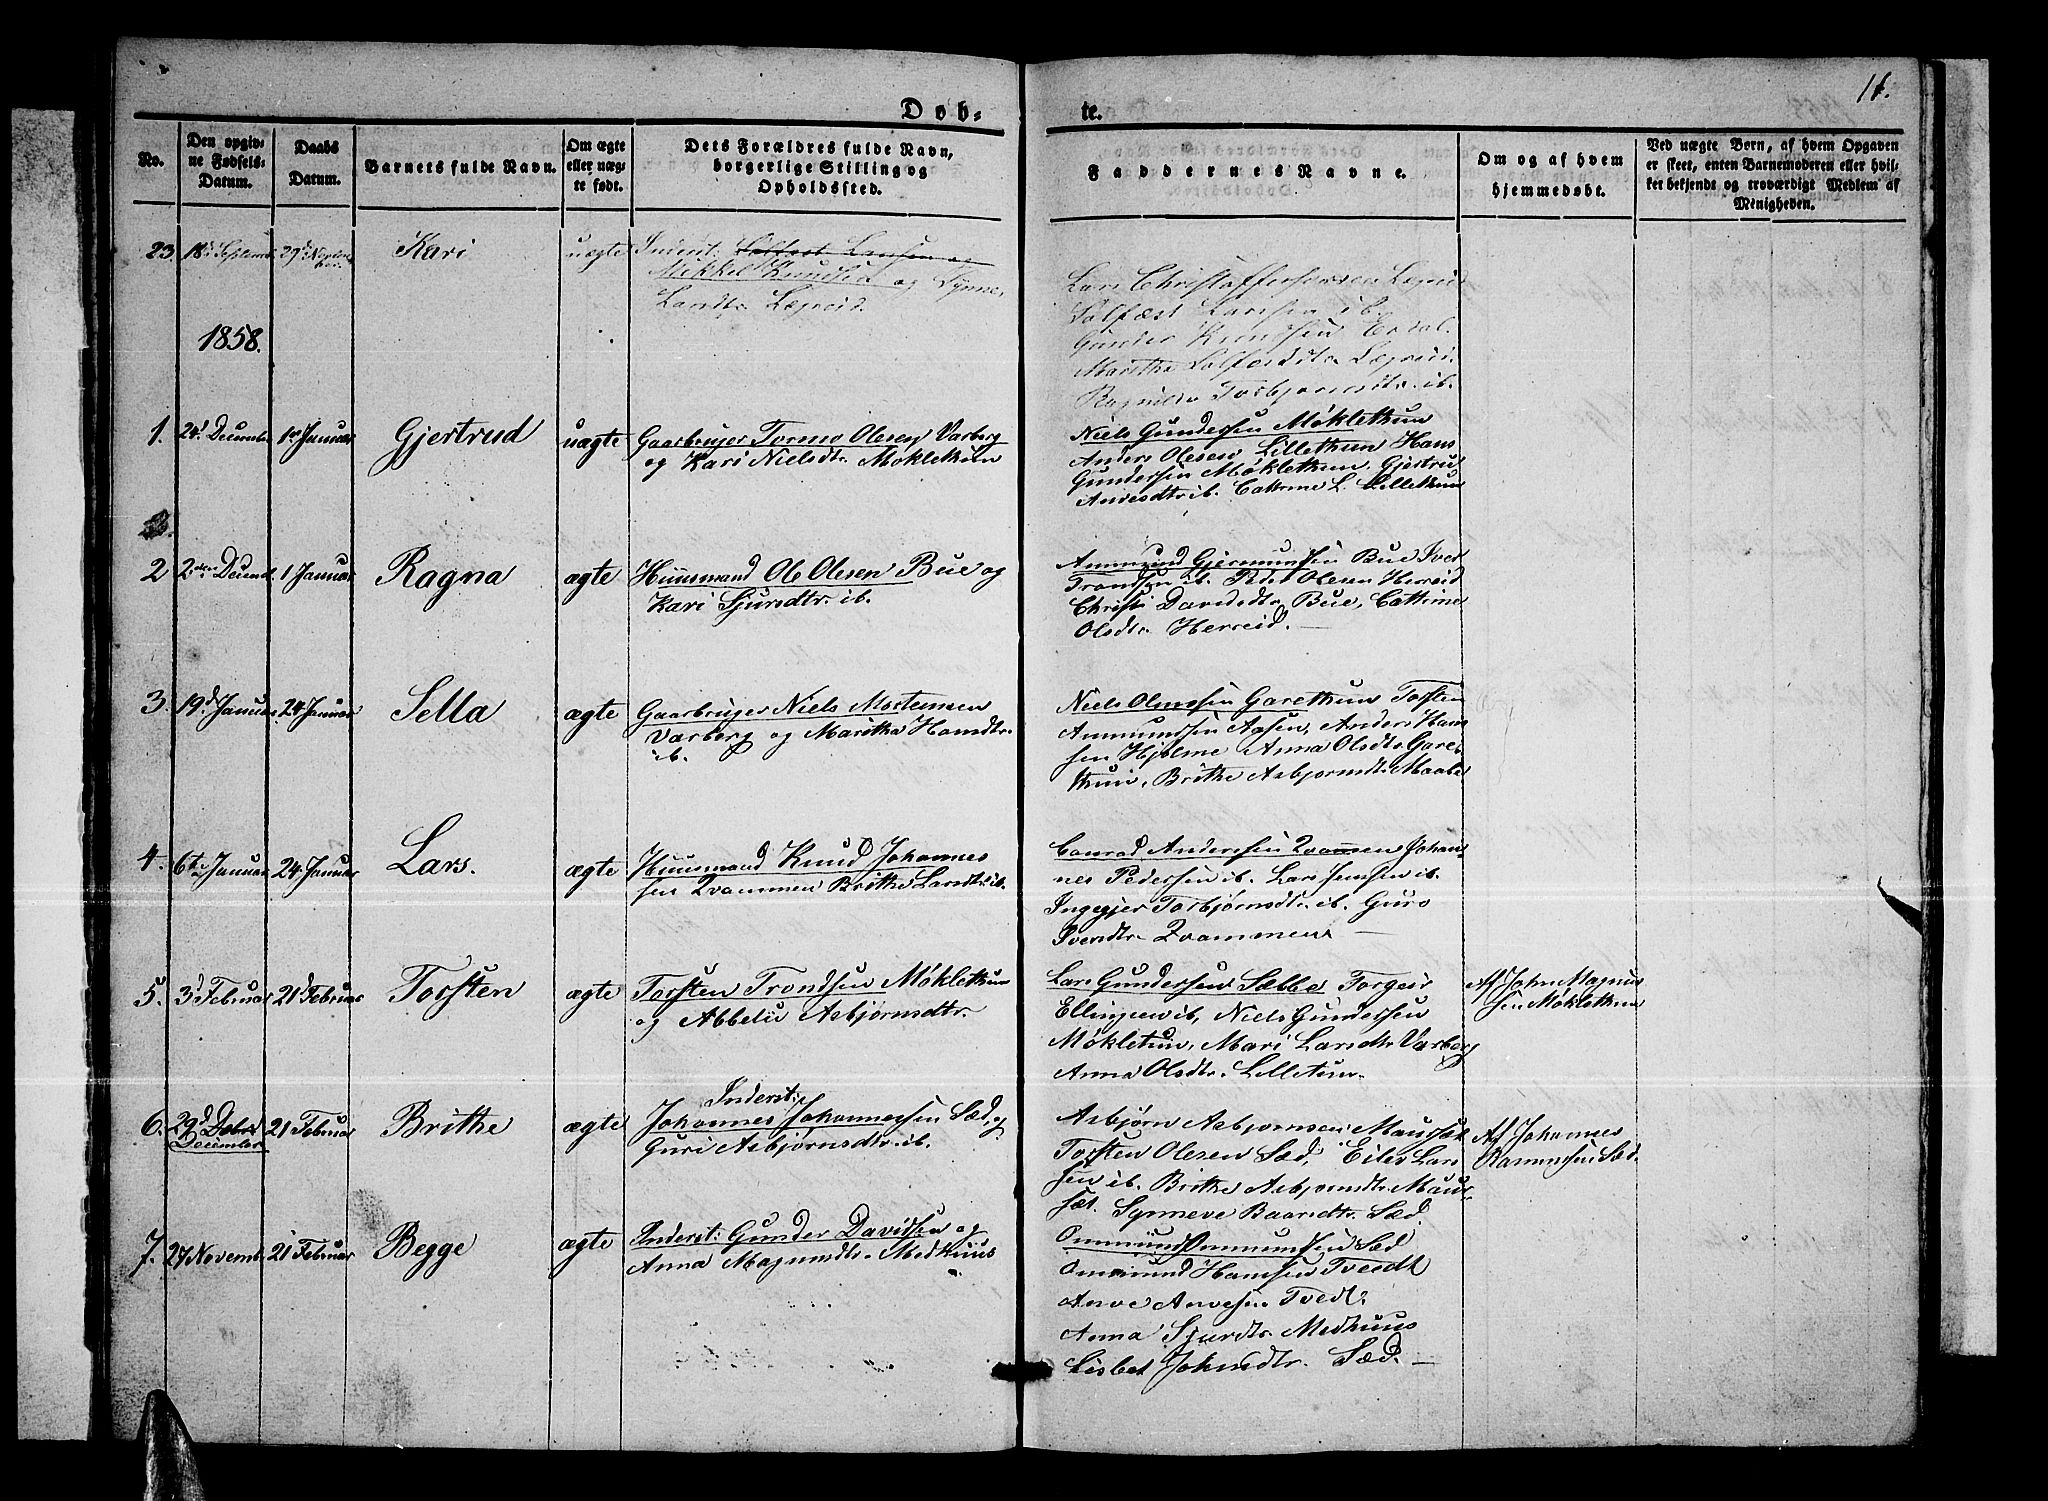 Døb-
te.
16.
No.
Den opgiv-
ne Fødsels-
Datum.
Daabs
Datum.
Barnets fulde Navn.
Om ægte
eller uæg-
te født.
Dets Forældres fulde Navn,
borgerlige Stilling og
Opholdssted.
Faddernes Navne.
Om og af hvem
hjemmedøbt.
Ved uægte Børn, af hvem Opgaven
er skeet, enten Barnemoderen eller hvil-
ket bekjendt og troværdigt Medlem af
Menigheden.
23. 18d Septemb. 29d Novem-
ber.
Kari
uægte
Inderst: Solfæst Larsen og
Mikkel Knudsen og Synne
Larsdtr Læpreid.
Lars Christoffersen Læpreid
Solfæst Larssen ib.
Gunder Knudsen Erdal.
Marithe Solfæstdtr Læpreid.
Ragnild Torbjørnsdtr. ib.
1858.
1. 24d Decembr 1ste Januar
Gjertrud
uægte
Gaarbruger Tormo Olesen Varberg
og Kari Nielsdtr. Møklethun
Niels Gundersen Møklethun
Anders Olesen Lillethun Hans
Gundersen Møklethun. Gjertrud
Arvesdtr ib. Cathrine L. Lillethun
2 2den Decemb. 1 Januar
Ragna
ægte
Huusmand Ole Olesen Bue og
Kari Sjursdtr. ib.
Ammund Gjermundsen Bue Iver
Trondsen ib. Peder Olesen Herreid
Christi Davidsdtr Bue, Cathrine
Olsdtr Herreid. —
3. 19d Januar. 24 Januar
Sella
ægte
Gaarbruger Niels Mortensen
Varberg og Maritha Hansdtr.
ib.
Niels Olsen Garethun Torsten
Ammundsen Aasen, Anders Han-
sen Hjelme Anna Olsdtr Gare-
thun, Brithe Asbjørnsdtr Maabø
4. 6te Januar 24 Januar
Lars.
ægte
Huusmand Knud Johannes-
sen Qvammen Brithe Larsdtr ib.
Conrad Andersen Qvammen Johan-
nes Pedersen ib. Lars Jensen ib.
Ingegjer Torbjørnsdtr. ib. Guro
Svendtr. Qvammen —
5. 3d Februar 21d Februar
Torsten
ægte
Torsten Trondsen Møklethun
og Abbelu Asbjørnsdtr.
Lars Gundersen Sæbbø Torgeir
Ellingsen ib, Niels Gundersen
Møkletun, Mari Larsdtr Varberg
Anna Olsdtr. Lilletun.
Af John Magnus-
sen Møklethun
6. 29d Debr
December 21 Februar
Brithe
ægte
Inderst:
Johannes Johannessen Sæd, og
Guri Asbjørnsdtr. ib.
Asbjørn Asbjørnsen Maursæt
Torsten Olesen Sæd, Eilev Lar-
sen ib. Brithe Asbjørnsdtr. Maur-
sæt. Synneve Baardtr. Sæd
Af Johannes
Rasmussen Sæd.
7. 27 Novemb. 21 Februar
Begge
ægte
Inderst: Gunder Davidsen og
Anna Magnusdtr. Medhuus
Ommund Ommundsen Sæd
Ommund Hansen Tvedt
Arve Arvesen Tvedt.
Anna Sjurdtr. Medhuus
Lisbet Johnsdtr. Sæd. —